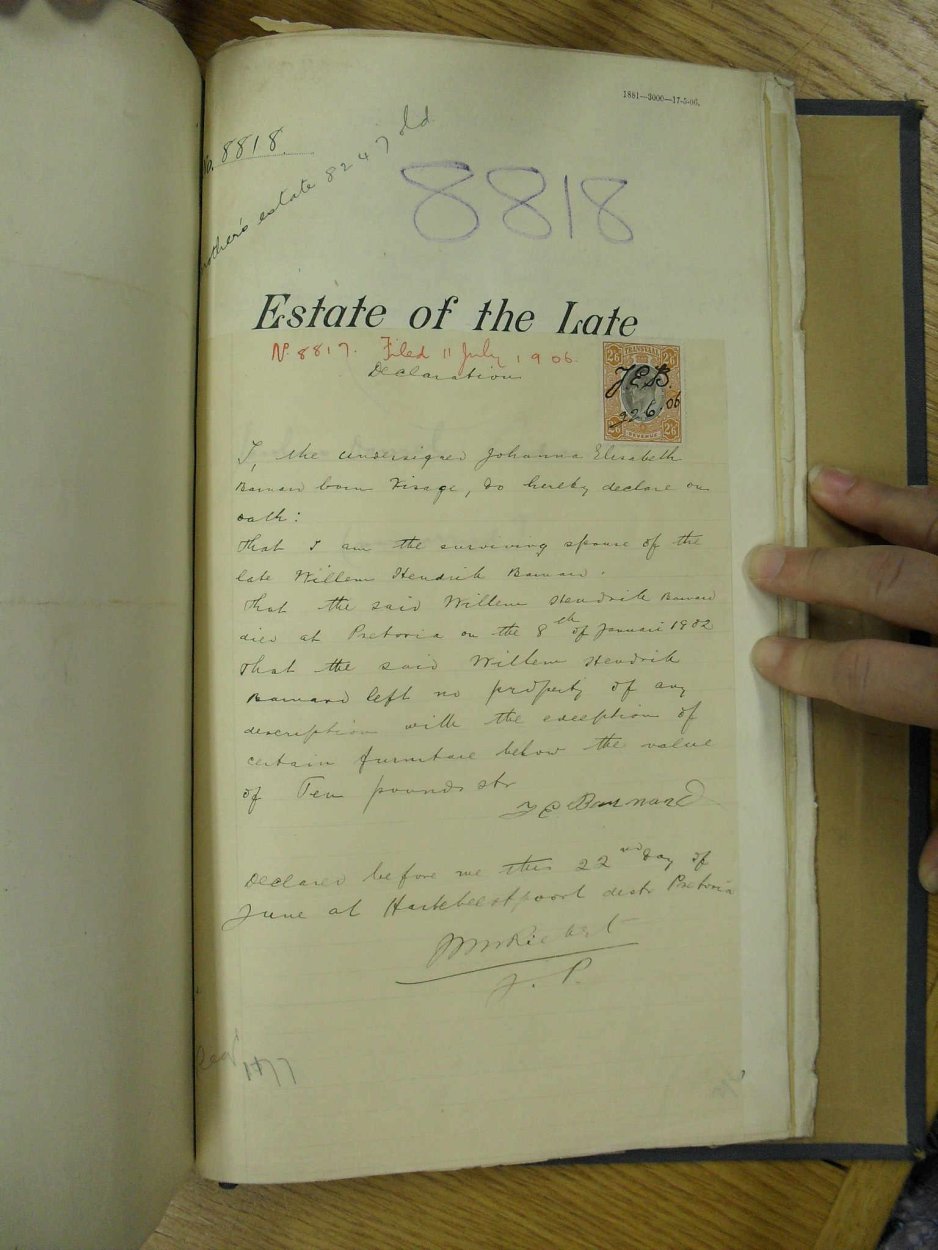 1881—3000—17-5-06.
No. 8818.
mother's estate 8247 old
8818
Estate of the Late
No 8817. Filed 11 July 1906.
Declaration
TRANSVAAL
2/6 2/6
J.E.B.
22.6.06
2/6 REVENUE 2/6
I, the undersigned Johanna Elisabeth
Barnard born Visage, do hereby declare on
oath:
That I am the surviving spouse of the
late Willem Hendrik Barnard.
That the said Willem Hendrik Barnard
died at Pretoria on the 8th of Januari 1902
That the said Willem Hendrik
Barnard left no property of any
description with the exception of
certain furniture below the value
of Ten pounds str
J E Barnard
Declared before me this 22nd day of
June at Hartebeestpoort distr Pretoria
J. P.